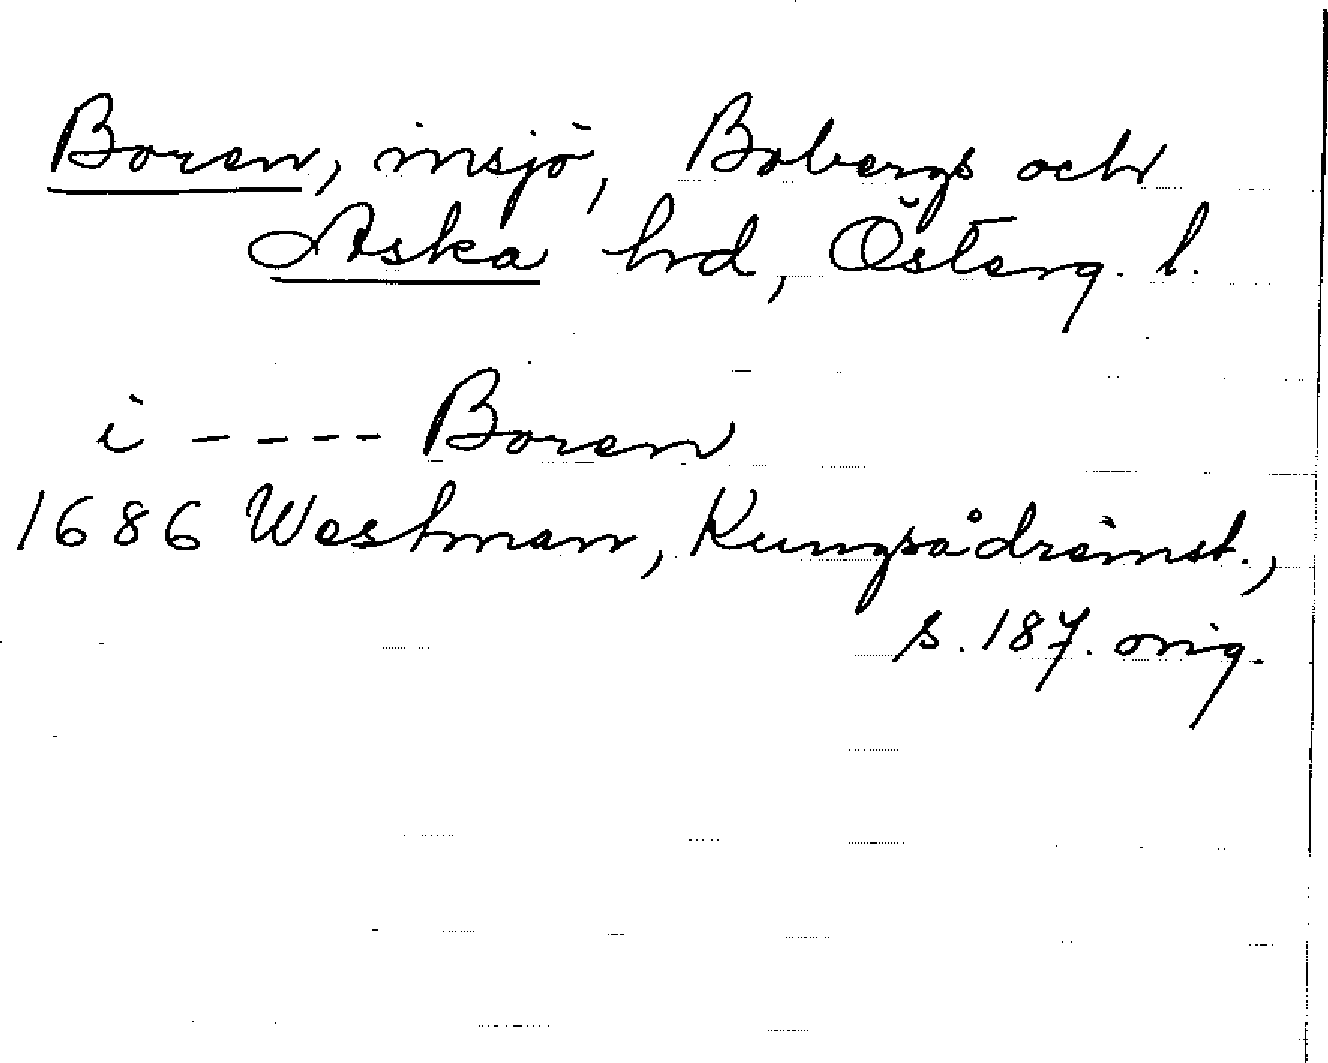 Boren, insjö, Bobergs och
Aska hd, Österg. l.
i ---- Boren
1686 Westman, Kungsådreinst.,
s. 187. orig.